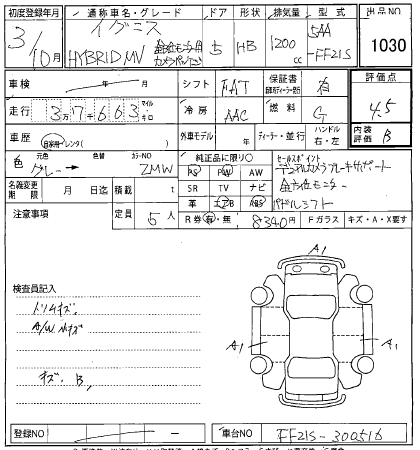 初度登録年月 通称車名・グレード ドア 形状 排気量 型式 出品NO
3/10月 イグニス 5 HB 1200cc 5AA-FF21S 1030
HYBRID MV 全方位モニター用カメラパッケージ
車検 年 月 シフト FAT 保証書 有 評価点
走行 3万7千663 マイル キロ 冷房 AAC 燃料 G 4.5
車歴 自家用・レンタ( ) 外車モデル 年 ディーラー・並行 ハンドル 右・左 内装評価 B
色 元色 グレー → 色替 カラーNO ZMW
純正品に限り○
PS PW AW
SR TV ナビ
革 エアB ABS
セールスポイント
デュアルカメラブレーキサポート
全方位モニター
パドルシフト
名義変更期限 月 日迄 積載 t
注意事項 定員 5人 R券 有・無 8340円 Fガラス キズ・A・X要す
検査員記入
トリムキズ
A/Wハキズ
キズ、B
A1
A1
A1
登録NO 車台NO FF21S-300516